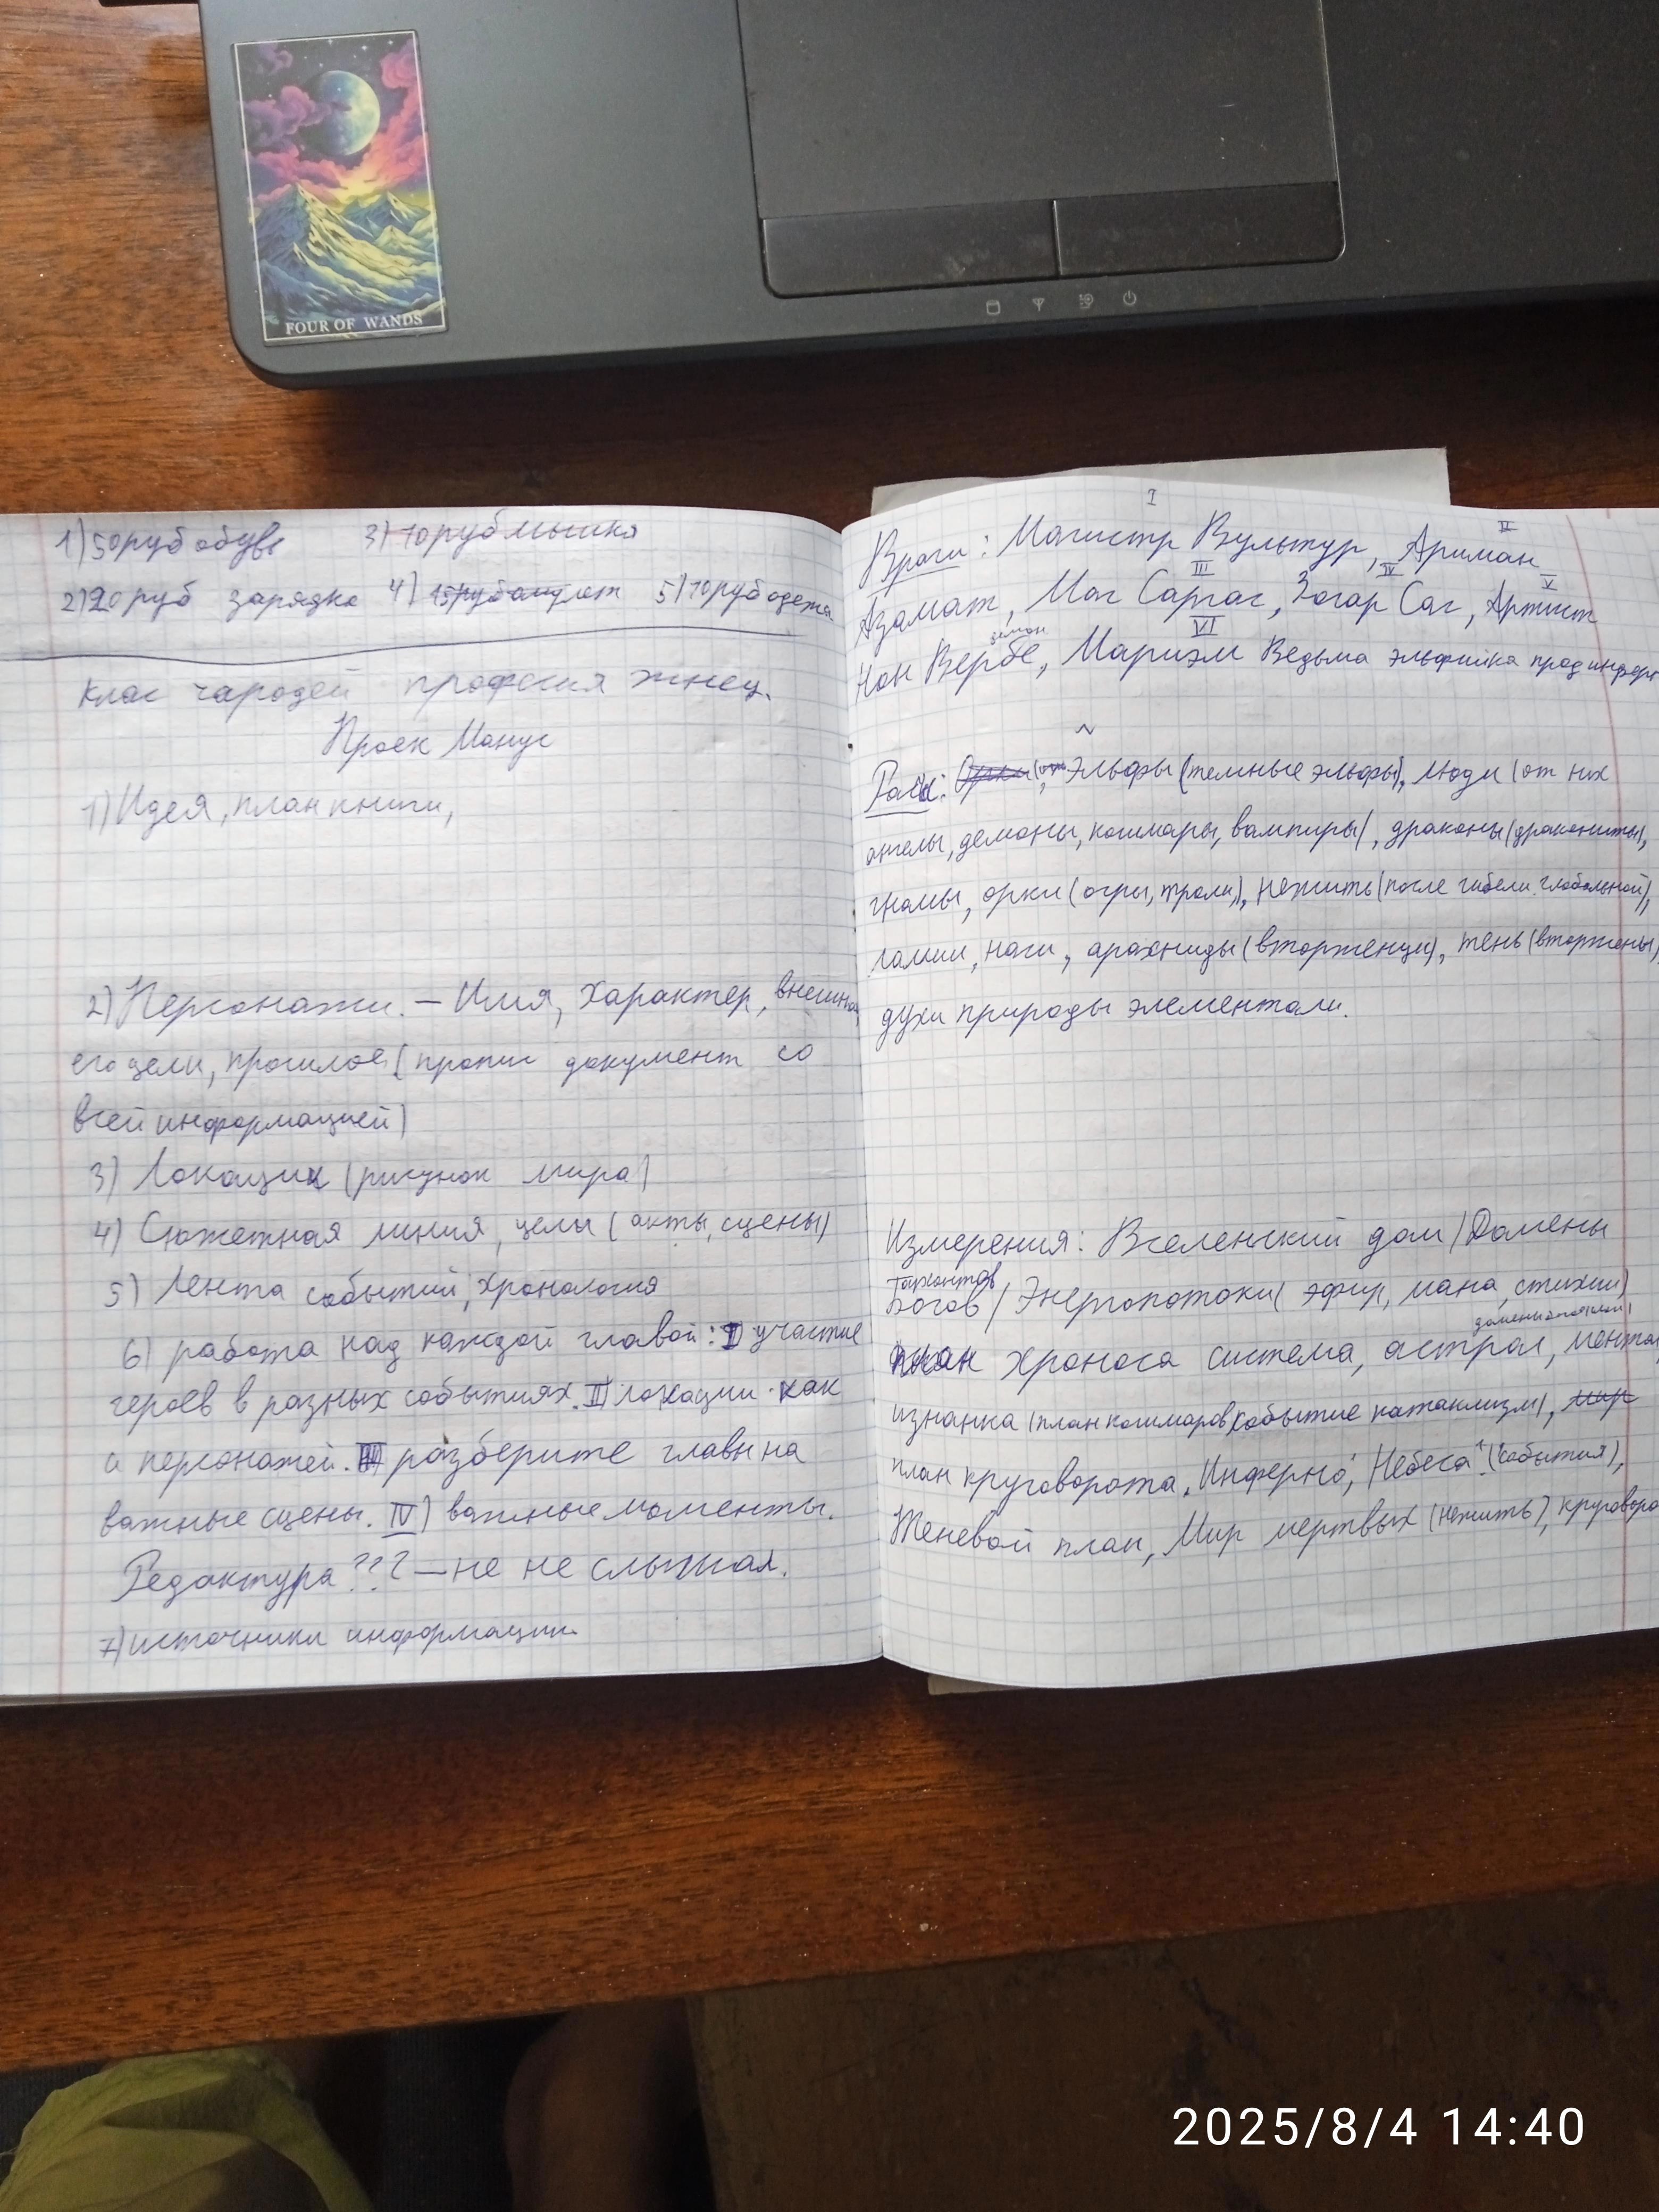 FOUR OF WANDS
1) 50 руб обувь 3) 10 руб мышка
2) 20 руб зарядка 4) 15 руб амулет 5) 10 руб одежа
Клас чародей професия жнец.
Проек Манус
1) Идея, план книги,
2) Персонажи. – Имя, Характер, внешно
его цели, прошлое (пропис документ со
всей информацией)
3) Локации (рисунок мира)
4) Сюжетная линия, целы (акты, сцены)
5) Лента событий, хронология
6) работа над каждой главой: I) участие
героев в разных событиях. II) локации как
и персонажей. III) разберите главы на
важные сцены. IV) важные моменты.
Редактура??? – не не слышал.
7) источники информации
I II
Враги: Магистр Вультур, Ариман
III IV V
Азамат, Маг Саргас, Зогар Саг, Артист
демон VI
Нан Вербе, Мариэм Ведьма эльфийка
Расы: Эльфы (темные эльфы), люди (от них
ангелы, демоны, кошмары, вампиры), драконы (драконисты),
гномы, орки (огры, троли), нежить (после гибели глобальной),
ламии, наги, арахниды (вторженци), тень (вторжены)
духи природы элементали.
Измерения: Вселенский дом / Домены
Богов / Энергопотоки (эфир, мана, стихии)
план хроноса система, астрал, ментал,
изнанка (план кошмаров событие катаклизм), мир
план круговорота, Инферно, Небеса (события),
Теневой план, Мир мертвых (нежить), круговоро
2025/8/4 14:40